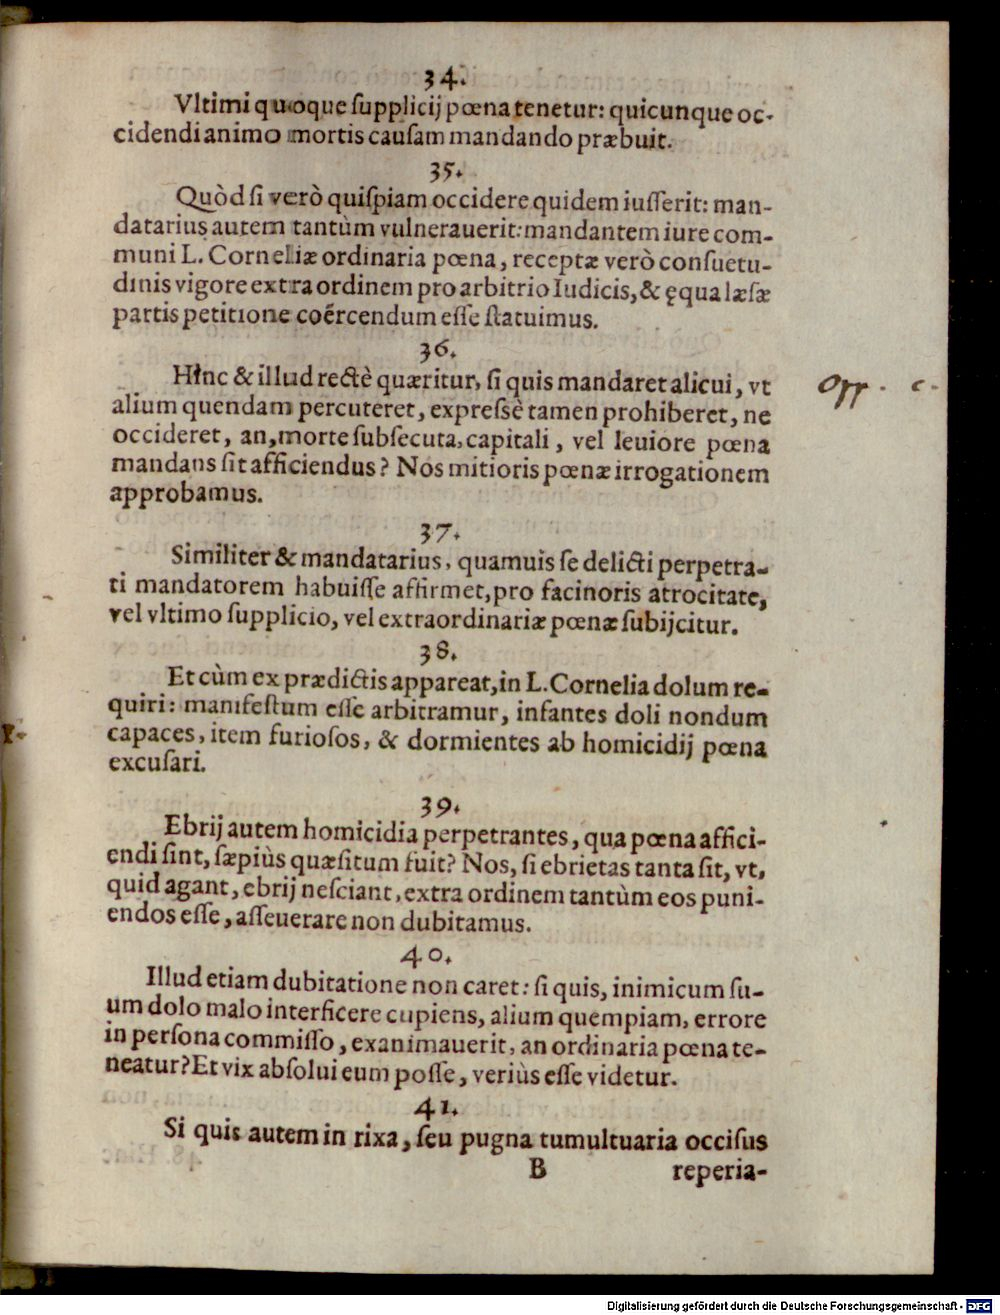 34.
Vltimi quoque ſupplicij pœna tenetur: quicunque oc-
cidendi animo mortis cauſam mandando præbuit.
35.
Quòd ſi verò quiſpiam occidere quidem iuſſerit: man-
datarius autem tantùm vulnerauerit: mandantem iure com-
muni L. Corneliæ ordinaria pœna, receptæ verò conſuetu-
dinis vigore extra ordinem pro arbitrio Iudicis, & ęqua læſæ
partis petitione coërcendum eſſe ſtatuimus.
36.
Hinc & illud rectè quæritur, ſi quis mandaret alicui, vt
alium quendam percuteret, expreſsè tamen prohiberet, ne
occideret, an, morte ſubſecuta, capitali, vel leuiore pœna
mandans ſit afficiendus? Nos mitioris pœnæ irrogationem
approbamus.
37.
Similiter & mandatarius, quamuis ſe delicti perpetra-
ti mandatorem habuiſſe affirmet, pro facinoris atrocitate,
vel vltimo ſupplicio, vel extraordinariæ pœnæ ſubijcitur.
38.
Et cùm ex prædictis appareat, in L. Cornelia dolum re-
quiri: manifeſtum eſſe arbitramur, infantes doli nondum
capaces, item furioſos, & dormientes ab homicidij pœna
excuſari.
39.
Ebrij autem homicidia perpetrantes, qua pœna affici-
endi ſint, ſæpiùs quæſitum fuit? Nos, ſi ebrietas tanta ſit, vt,
quid agant, ebrij neſciant, extra ordinem tantùm eos puni-
endos eſſe, aſſeuerare non dubitamus.
40.
Illud etiam dubitatione non caret: ſi quis, inimicum ſu-
um dolo malo interficere cupiens, alium quempiam, errore
in perſona commiſſo, exanimauerit, an ordinaria pœna te-
neatur? Et vix abſolui eum poſſe, veriùs eſſe videtur.
41.
Si quis autem in rixa, ſeu pugna tumultuaria occiſus
B reperia-
Digitalisierung gefördert durch die Deutsche Forschungsgemeinschaft - DFG